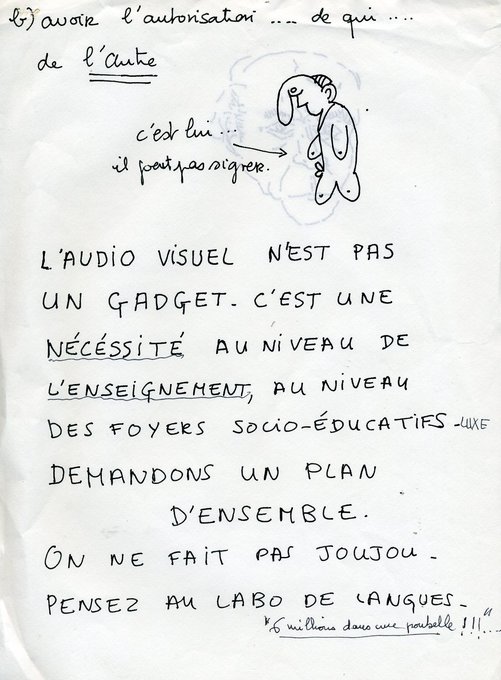 b) avoir l'autorisation .... de qui ....
de l'autre
c'est lui ...
il peut pas signer.
L'AUDIO VISUEL N'EST PAS
UN GADGET. C'EST UNE
NÉCÉSSITÉ AU NIVEAU DE
L'ENSEIGNEMENT, AU NIVEAU
DES FOYERS SOCIO-ÉDUCATIFS -LUXE
DEMANDONS UN PLAN
D'ENSEMBLE.
ON NE FAIT PAS JOUJOU -
PENSEZ AU LABO DE LANGUES -
"6 millions dans une poubelle !!!"...